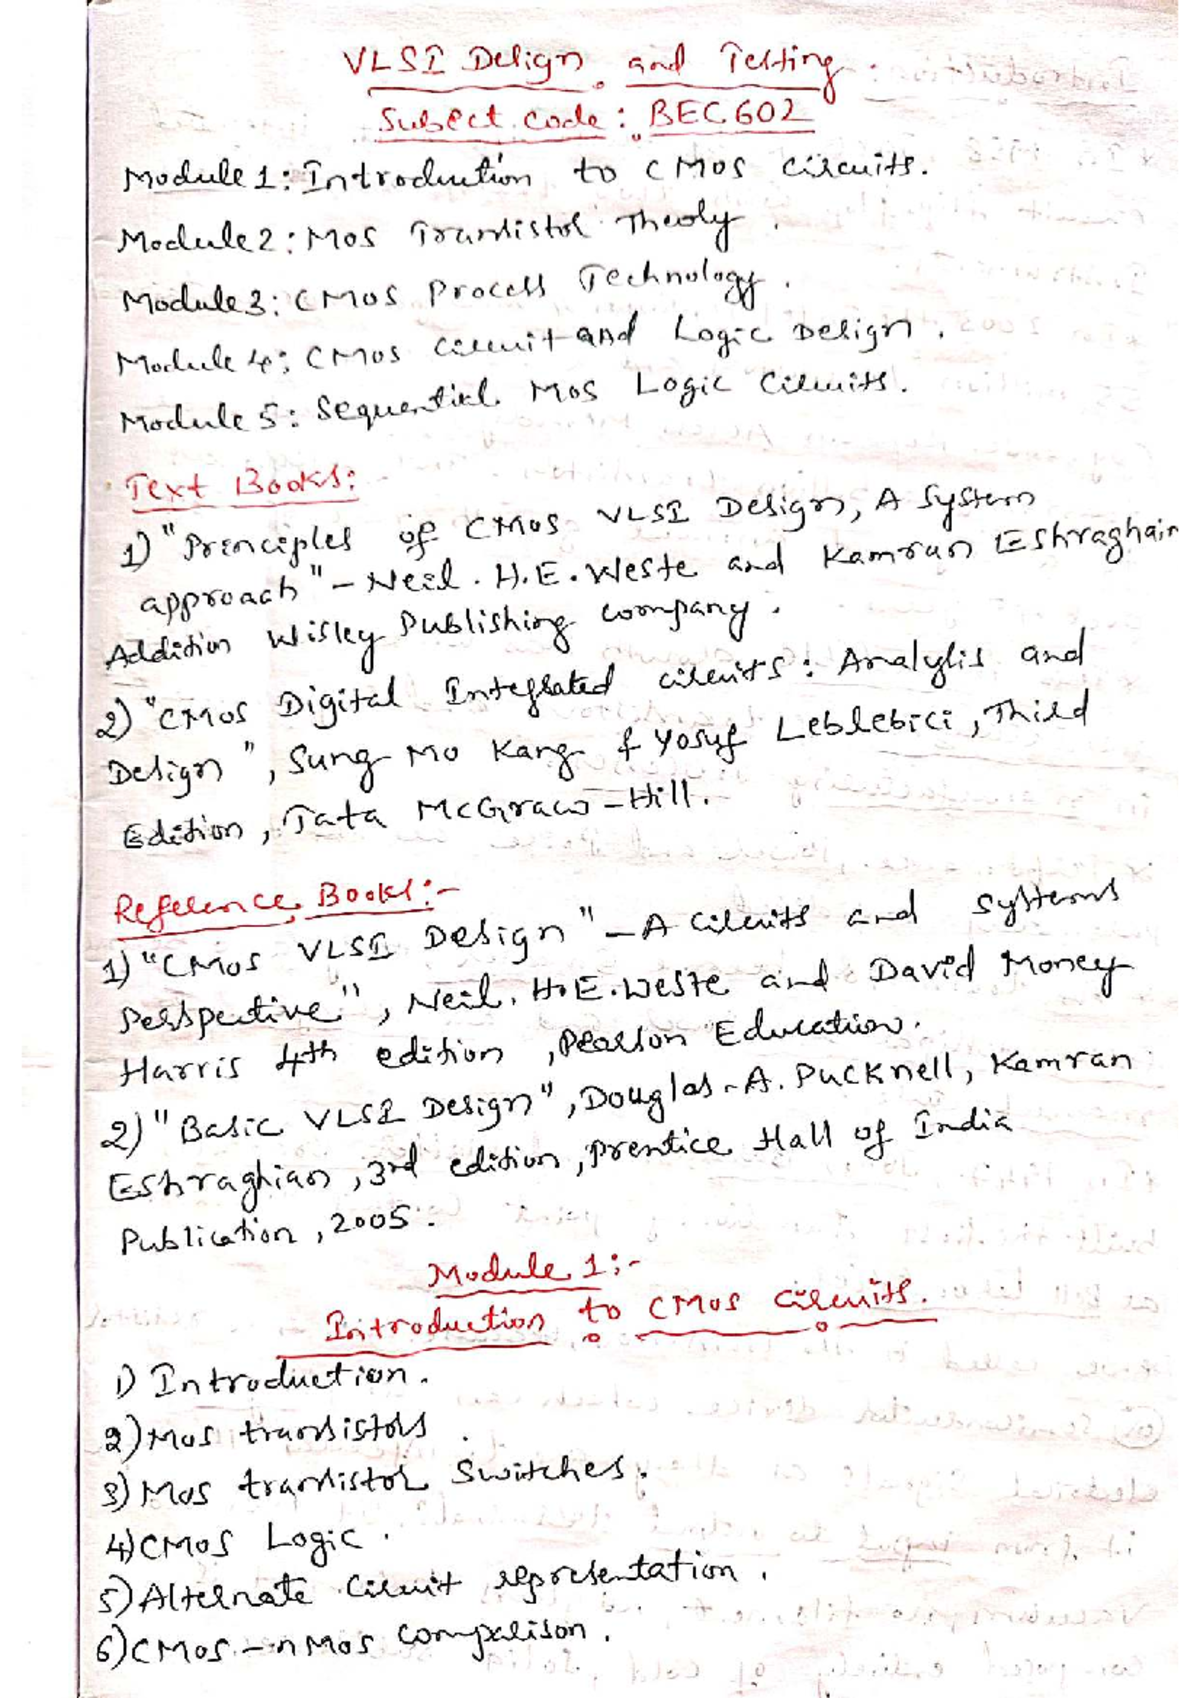 VLSI Design and Testing
Subect code: BEC602
Module 1: Introduction to CMOS circuits.
Module 2: MOS Transistor Theory.
Module 3: CMOS Process Technology.
Module 4: CMOS circuit and Logic Design.
Module 5: Sequential MOS Logic Circuits.
Text Books:
1) "Principles of CMOS VLSI Design, A System
approach" - Neil. H.E. Weste and Kamran Eshraghain
Addition Wisley Publishing company.
2) "CMOS Digital Integrated circuits: Analysis and
Design", Sung Mo Kang & Yosuf Leblebici, Third
Edition, Tata McGraw-Hill.
Reference Books:-
1) "CMOS VLSI Design" - A Circuits and systems
Perspective", Neil. H.E. Weste and David Money
Harris 4th edition, Pearson Education.
2) "Basic VLSI Design", Douglas-A. Pucknell, Kamran
Eshraghian, 3rd edition, Prentice Hall of India
Publication, 2005.
Module 1:-
Introduction to CMOS circuits.
1) Introduction.
2) MOS transistors.
3) MOS transistor Switches.
4) CMOS Logic.
5) Alternate Circuit representation.
6) CMOS-nMOS comparison.